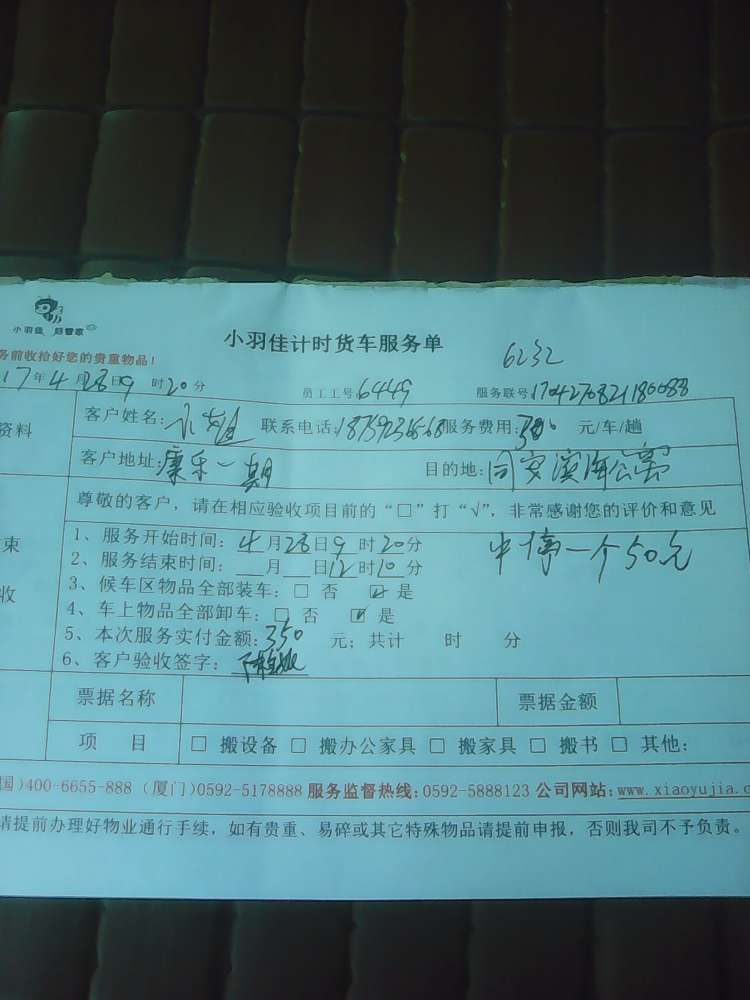 小羽佳 好管家
小羽佳计时货车服务单
6232
务前收拾好您的贵重物品!
17年4月28日9时20分 员工工号6449 服务联号1704270821180088
资料 客户姓名: 联系电话: 服务费用: 元/车/趟
客户地址:康乐一期 目的地:同安滨海公寓
尊敬的客户,请在相应验收项目前的“□”打“√”,非常感谢您的评价和意见
束
收
1、服务开始时间:4月28日9时20分
中停一个50元
2、服务结束时间:__月__日12时10分
3、候车区物品全部装车:□ 否 ☑ 是
4、车上物品全部卸车:□ 否 ☑ 是
5、本次服务实付金额:350元;共计 时 分
6、客户验收签字:
票据名称 票据金额
项 目 □ 搬设备 □ 搬办公家具 □ 搬家具 □ 搬书 □ 其他:
国)400-6655-888 (厦门)0592-5178888 服务监督热线:0592-5888123 公司网站:www.xiaoyujia.c
请提前办理好物业通行手续,如有贵重、易碎或其它特殊物品请提前申报,否则我司不予负责。